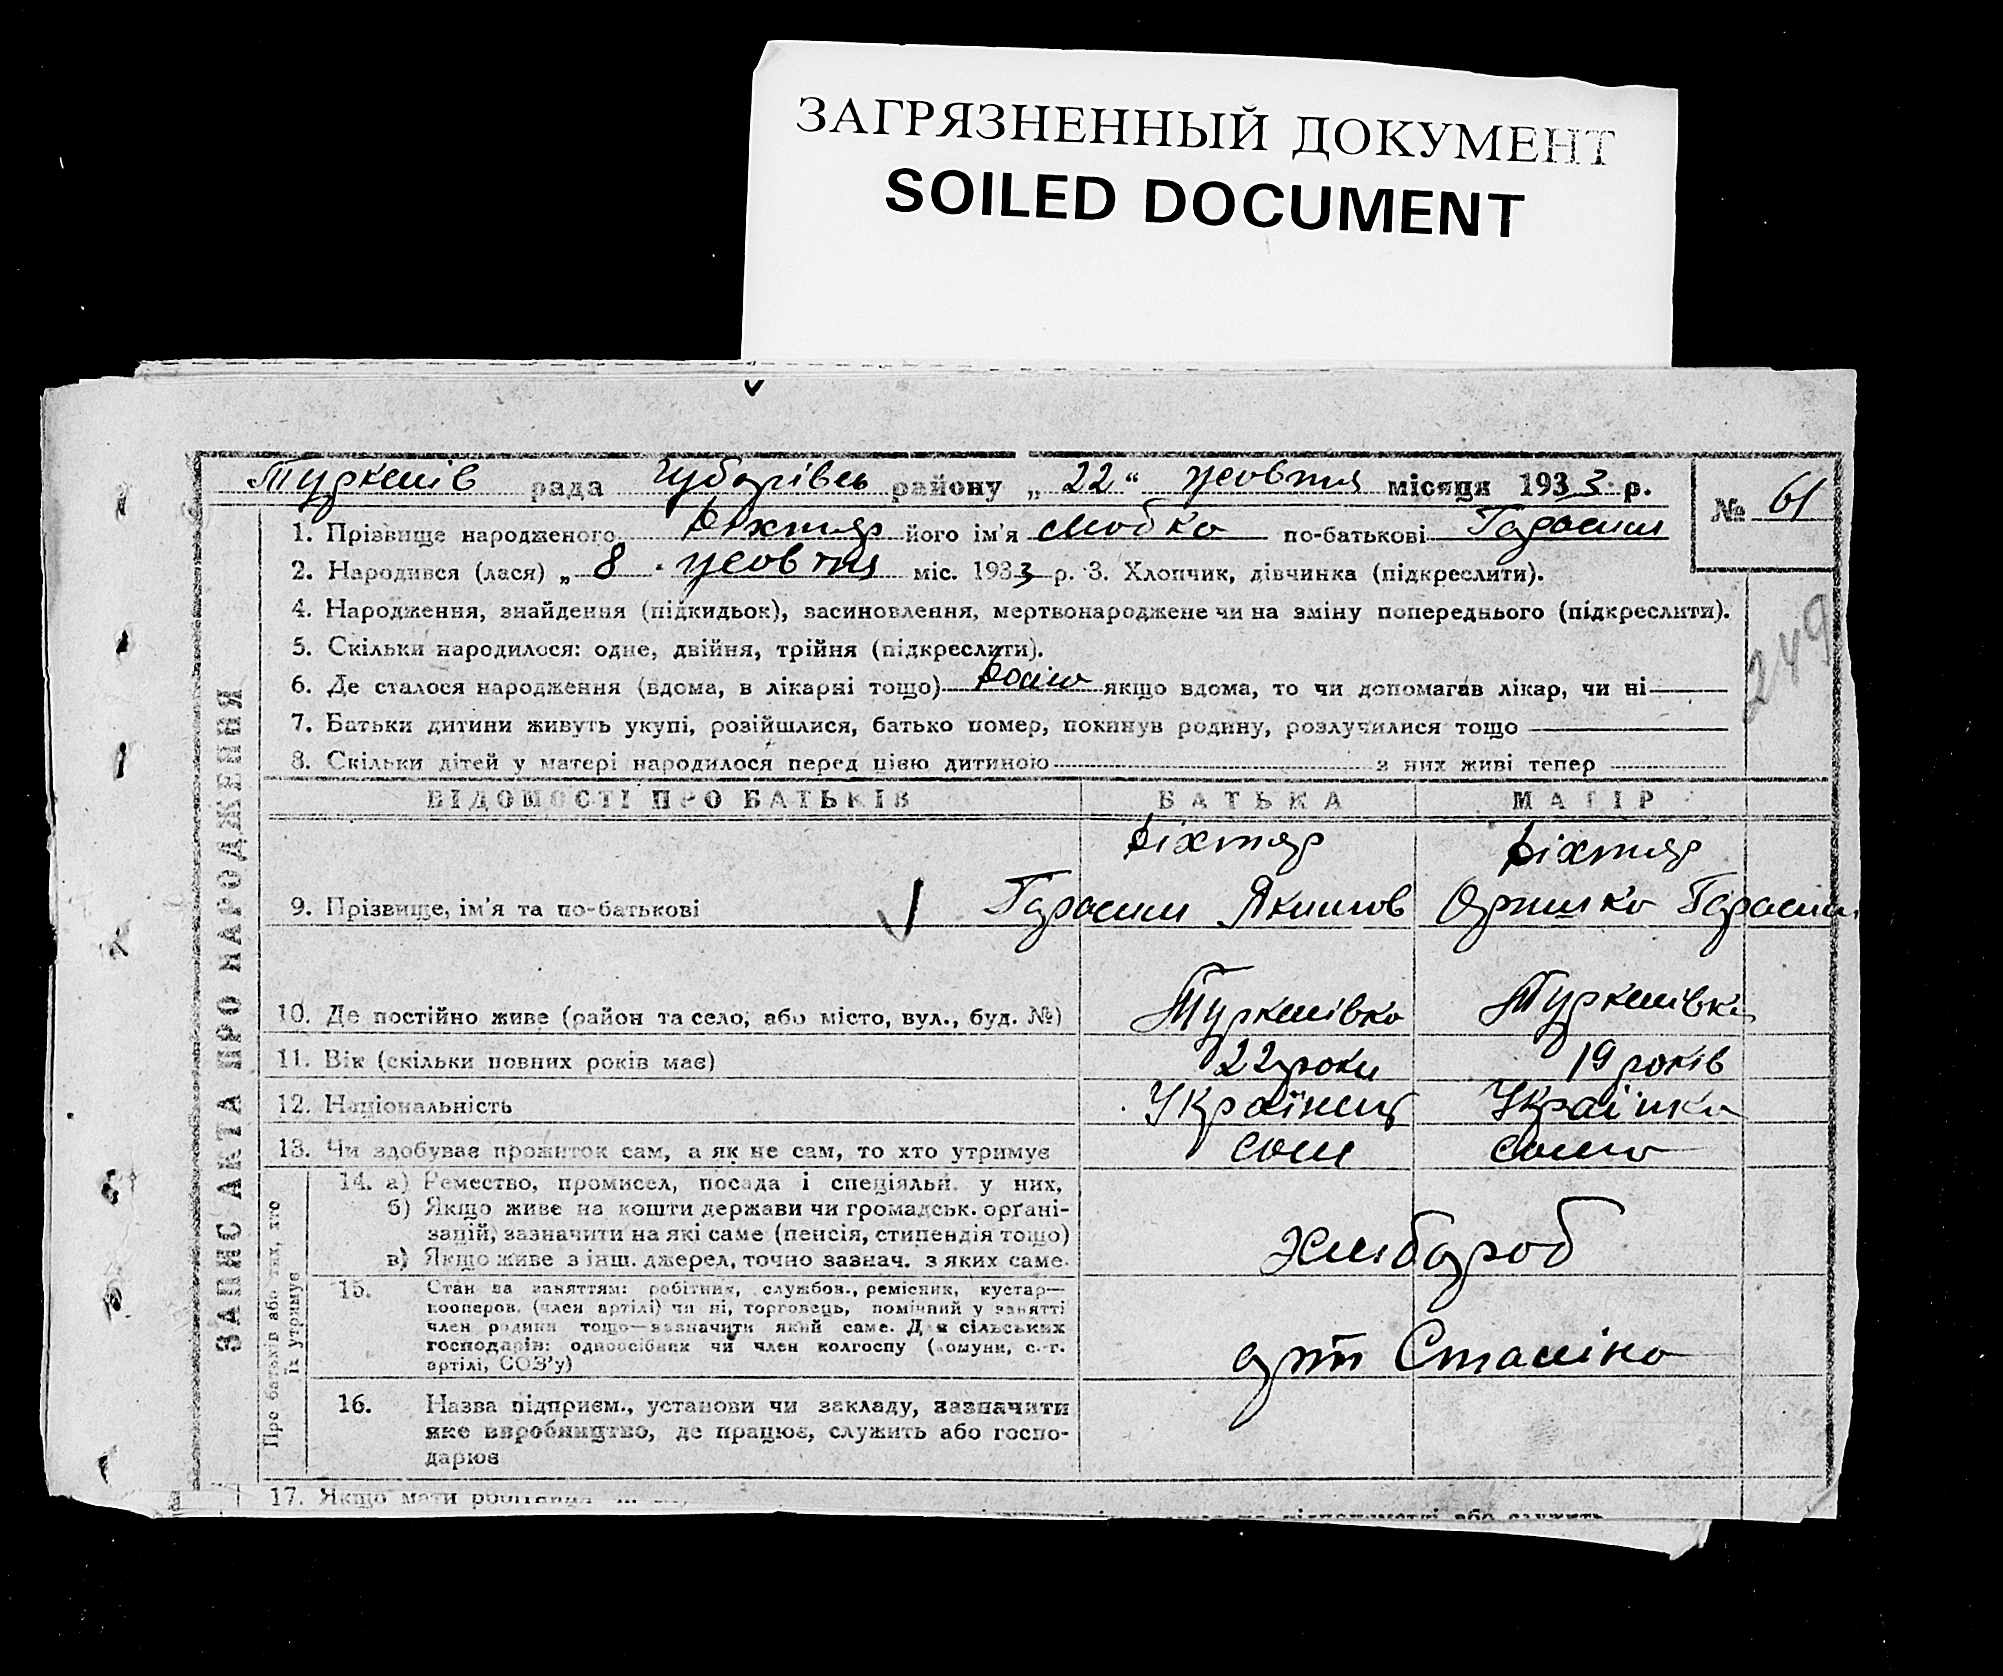 ЗАГРЯЗНЕННЫЙ ДОКУМЕНТ
SOILED DOCUMENT
рада району „ 22 “ жовтня місяця 1933 р. № 61
1. Прізвище народженого Віхтяр його ім'я по-батькові Гарасим
2. Народився (лася) „ 8 жовтня міс. 1933 р. 3. Хлопчик, дівчинка (підкреслити).
4. Народження, знайдення (підкидьок), засиновлення, мертвонароджене чи на зміну попереднього (підкреслити).
5. Скільки народилося: одне, двійня, трійня (підкреслити).
6. Де сталося народження (вдома, в лікарні тощо) якщо вдома, то чи допомагав лікар, чи ні
7. Батьки дитини живуть укупі, розійшлися, батько помер, покинув родину, розлучилися тощо
8. Скільки дітей у матері народилося перед цією дитиною з них живі тепер
249
ЗАПИС АКТА ПРО НАРОДЖЕННЯ
ВІДОМОСТІ ПРО БАТЬКІВ БАТЬКА МАТІР
Віхтяр Віхтяр
9. Прізвище, ім'я та по-батькові Гарасим Якимов Оришка Гарасим.
10. Де постійно живе (район та село, або місто, вул., буд. №) Туркенівка Туркенівка
11. Вік (скільки повних років має) 22 роки 19 років
12. Національність Українець Українка
13. Чи здобуває прожиток сам, а як не сам, то хто утримує сам сама
Про батьків або тих, хто їх утримує
14. а) Ремество, промисел, посада і спеціяльн. у них,
б) Якщо живе на кошти держави чи громадськ. орґані-
зацій, зазначити на які саме (пенсія, стипендія тощо)
в) Якщо живе з інш. джерел, точно зазнач. з яких саме.
Хлібороб
15. Стан за заняттям: робітник, службов., ремісник, кустар—
кооперов. (член артілі) чи ні, торговець, помічний у занятті
член родини тощо—зазначити який саме. Для сільських
господарів: одноосібник чи член колгоспу (комуни, с.-г.
артілі, СОЗ'у)
арт Сталіна
16. Назва підприєм., установи чи закладу, зазначити
яке виробництво, де працює, служить або госпо-
дарює
17. Якщо мати